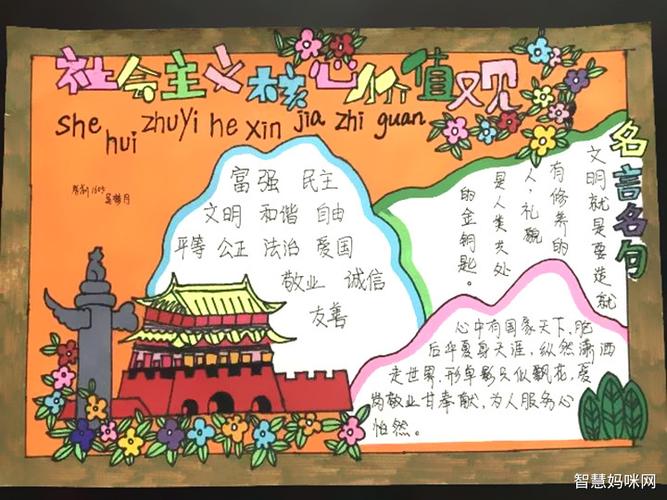 社会主义核心价值观
she hui zhuyi he xin jia zhi guan
富强 民主
文明 和谐 自由
平等 公正 法治 爱国
敬业 诚信
友善
名言名句
文明就是要造就
有修养的
人,礼貌
是人类共处
的金钥匙。
心中有国家天下,肥
后华夏身天涯,纵然潇洒
走世界,形单影只似飘花,爱
岗敬业甘奉献,为人服务心
怡然。
智慧妈咪网